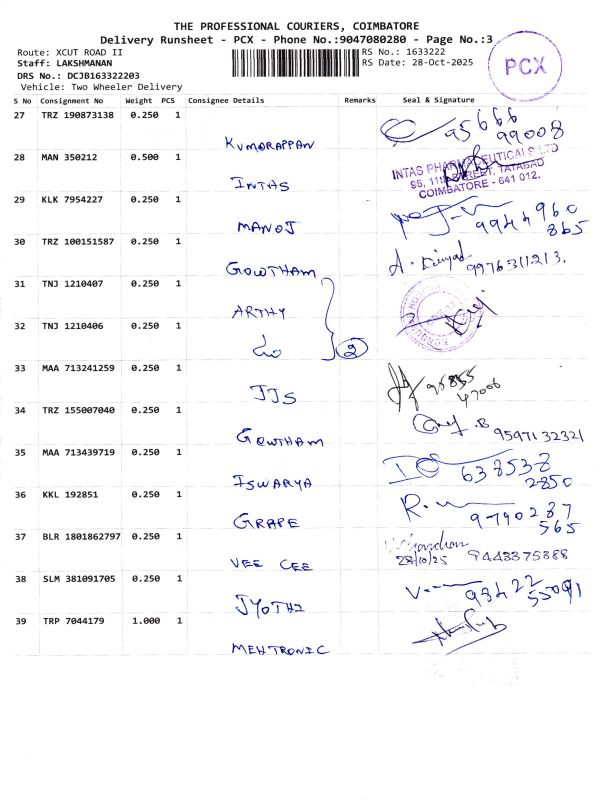 THE PROFESSIONAL COURIERS, COIMBATORE
Delivery Runsheet - PCX - Phone No.:9047080280 - Page No.:3
Route: XCUT ROAD II
RS No.: 1633222
Staff: LAKSHMANAN
RS Date: 28-Oct-2025
PCX
DRS No.: DCJB163322203
Vehicle: Two Wheeler Delivery
S No Consignment No Weight PCS Consignee Details Remarks Seal & Signature
27 TRZ 190873138 0.250 1
95666
99008
KUMARAPPAN
28 MAN 350212 0.500 1
INTAS PHARMACEUTICALS LTD
96, 11th STREET, TATABAD
COIMBATORE - 641 012.
INTAS
29 KLK 7954227 0.250 1
9944960
865
MANOJ
30 TRZ 100151587 0.250 1
9976311213.
GOWTHAM
31 TNJ 1210407 0.250 1
ARTHY
32 TNJ 1210406 0.250 1
do
2
33 MAA 713241259 0.250 1
95855
47006
JJS
34 TRZ 155007040 0.250 1
9597132321
GOWTHAM
35 MAA 713439719 0.250 1
638538
2850
ISWARYA
36 KKL 192851 0.250 1
9790287
565
GRAPE
37 BLR 1801862797 0.250 1
28/10/25 9443375888
VEE CEE
38 SLM 381091705 0.250 1
98422
55091
JYOTHI
39 TRP 7044179 1.000 1
MEHTRONIC